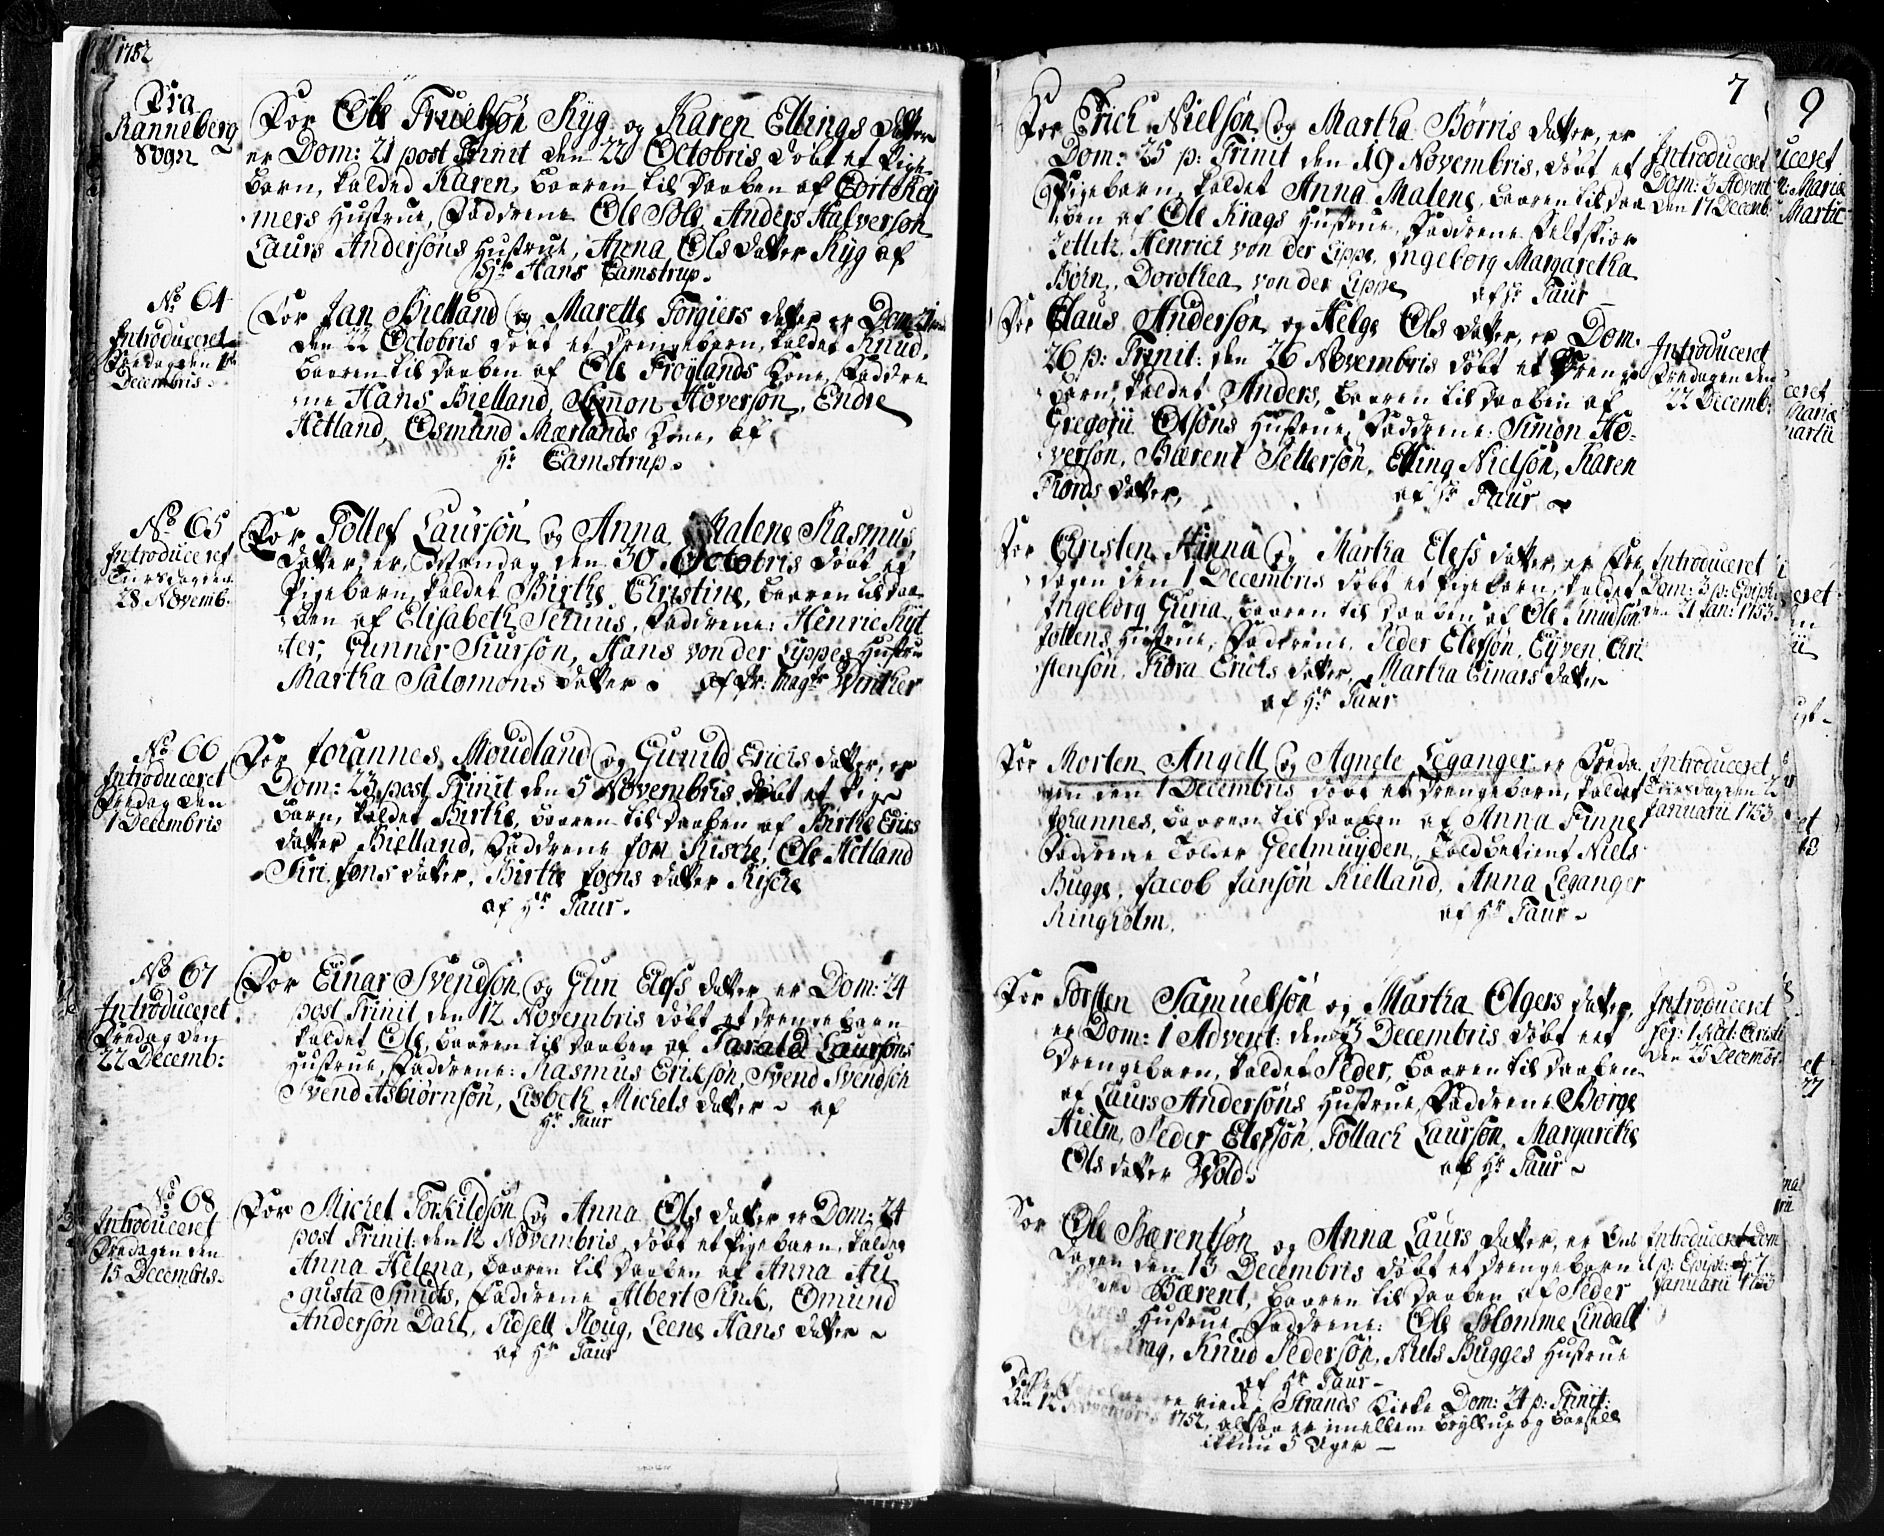 1752
Fra
Ranneberg
Sogn
For Ole Truelsøn Ryg og Karen Ellings datter
er Dom: 21 post Trinit den 22 Octobris døbt et Pige-
barn, kalded Karen, baaren til daaben af Cort Rey
mers Hustrue, Faddrene Ole Sole, Anders Halversøn
Laurs Andersøns Hustrue, Anna Ols datter Ryg af
Hr Hans Camstrup.
No 64
Introduceret
Fredagen den 1te
Decembris.
For Jan Bielland og Marette Torgiers datter er Dom: 21 post
den 22 Octobris døbt et drengebarn, kaldet Knud,
baaren til daaben af Ole Frøylands Kone, Faddre
ne Hans Bielland, Simon Hoversøn, Endre
Hetland, Osmund Mærlands Kone, af
Hr Camstrup.
No 65
Introduceret
Tiirsdagen den
28 Novemb.
For Tollef Laursøn og Anna Malene Rasmus
datter, er Mandag den 30 Octobris døbt et
Pigebarn, kaldet Birthe Christine, baaren til daa-
ben af Elisabeth Servus, Faddrene: Henric Ryt
ter, Gunner Siursøn, Hans von der Lippes Hustrue
Martha Salomons datter. af Hr: Magr Winther
No 66
Introduceret
Fredag den
1 Decembris
For Johannes Moudland og Gunild Erichs datter, er
Dom: 23 post Trinit den 5 Novembris døbt et Pige
barn, kaldet Birthe, baaren til daaben af Birthe Erics
datter Bielland, Faddrene Jon Rische, Ole Hetland
Siri Jons datter, Birthe Joens datter Rische
af Hr Taur.
No 67
Introduceret
Fredag den
22 Decemb:
For Einar Svendsøn og Guri Elefs datter er Dom: 24
post Trinit den 12 Novembris døbt et drengebarn
kaldet Ole, baaren til daaben af Tarald Laursøns
Hustrue, Faddrene: Rasmus Eriksøn, Svend Svendsøn
Svend Asbiørnsøn, Lisbeth Michels datter af
Hr Taur
No 68
Introduceret
Fredagen den
15 Decembris.
For Michel Torkildsøn og Anna Ols datter er Dom: 24
post Trinit: den 12 Novembris, døbt et Pigebarn, kaldet
Anna Helena, baaren til daaben af Anna Au
gusta Smidts, Faddrene Albert Sink, Omund
Andersøn Dahl, Sidsell Ploug, Leene Hans datter
af Hr Taur
7
For Erich Nielsøn og Martha Børris datter, er
Dom: 25 p: Trinit den 19 Novembris, døbt et
Pigebarn, kaldet Anna Malene, baaren til daa
ben af Ole Krags Hustrue, Faddrene Feltskiær
Zetlitz, Henrich von der Lippe, Ingeborg Margaretha
Børn, Dorothea von der Lippe af Hr Taur
Introduceret
Dom: 3 Advent
den 17 Decemb:
For Claus Andersøn og Helge Ols datter, er Dom.
26 p: Trinit: den 26 Novembris døbt et Drenge
barn, kaldet Anders, baaren til daaben af
Gregorii Olsøns Hustrue, Faddrene: Simon Ho-
versøn, Bærent Pettersøn, Elling Nielsøn, Karen
Tiørds datter, af Hr Taur
Introduceret
Fredagen den
22 Decemb:
For Christen Hinna og Martha Elefs datter er Fre
dagen den 1 Decembris døbt et Pigebarn, kaldet
Ingeborg Guria, baaren til daaben af Ole Knudsøn
Joltens Hustrue, Faddrene, Peder Elefsøn, Eyven Chri
stensøn, Thora Erichs datter, Martha Einars datter
af Hr: Taur
Introduceret
Dom: 3 p: Epiph:
den 21 Jan: 1753
For Morten Angell og Agnete Leganger er Freda
gen den 1 Decembris døbt et drengebarn, kaldet
Johannes, baaren til daaben af Anna Finne
Faddrene Tolder Geelmuyden, Toldbetient Niels
Bugge, Jacob Jansøn Kielland, Anna Leganger
Ringholm. af Hr Taur
Introduceret
Tiirsdagen 2
Januarii 1753
For Torsten Samuelsøn og Martha Olgers datter,
er Dom: 1 Advent: den 3 Decembris døbt eet
drengebarn, kaldet Peder, baaren til daaben
af Laurs Andersøns Hustrue, Faddrene Børge
Hielm, Peder Elefsøn, Tollach Laursøn, Margarethe
Ols datter Wold. af Hr Taur
Introduceret
fer: 1 Nat: Christi
den 25 Decembr.
For Ole Bærentsøn og Anna Laurs datter, er Ons
dagen den 13 Decembris døbt et drengebarn
kalded Bærent, baaren til daaben af Peder
Hustrue Faddrene: Ole Slomme Lindall
Ole Krag, Knud Pedersøn, Niels Bugges Hustrue
af Hr Taur
Introduceret Dom
1 p: Epiph: d. 7
Januarii 1753
ere viede i Strands Kirke Dom: 24 p: Trinit:
den 12 Novembris 1752, altsaa er imellem Bryllup og Barsell
ikkun 5 Uger
9